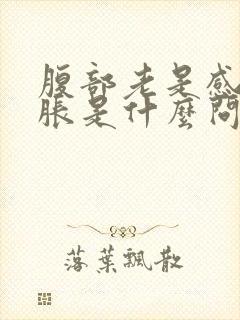 腹部老是感
脹是什麼問
落葉飄散